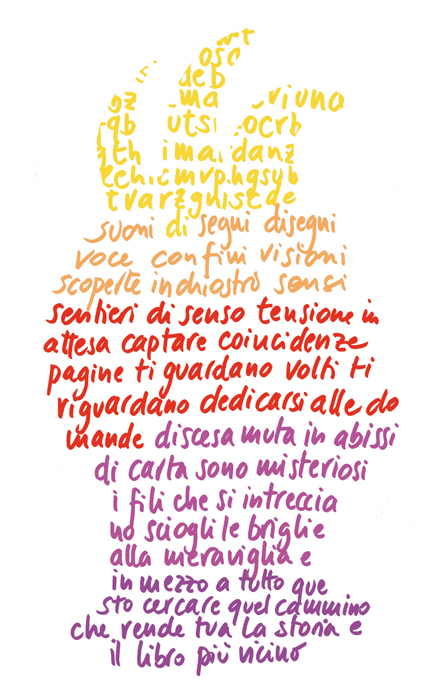 osc
deb
ma viuna
qb uts ocrb
th ima danz
tvarzgnistde
suoni di segni disegni
voce confini visioni
scoperte inchiostro sensi
sentieri di senso tensione in
attesa captare coincidenze
pagine ti guardano volti ti
riguardano dedicarsi alle do
mande discesa muta in abissi
di carta sono misteriosi
i fili che si intreccia
no sciogli le briglie
alla meraviglia e
in mezzo a tutto que
sto cercare quel cammino
che rende tua la storia e
il libro più vicino